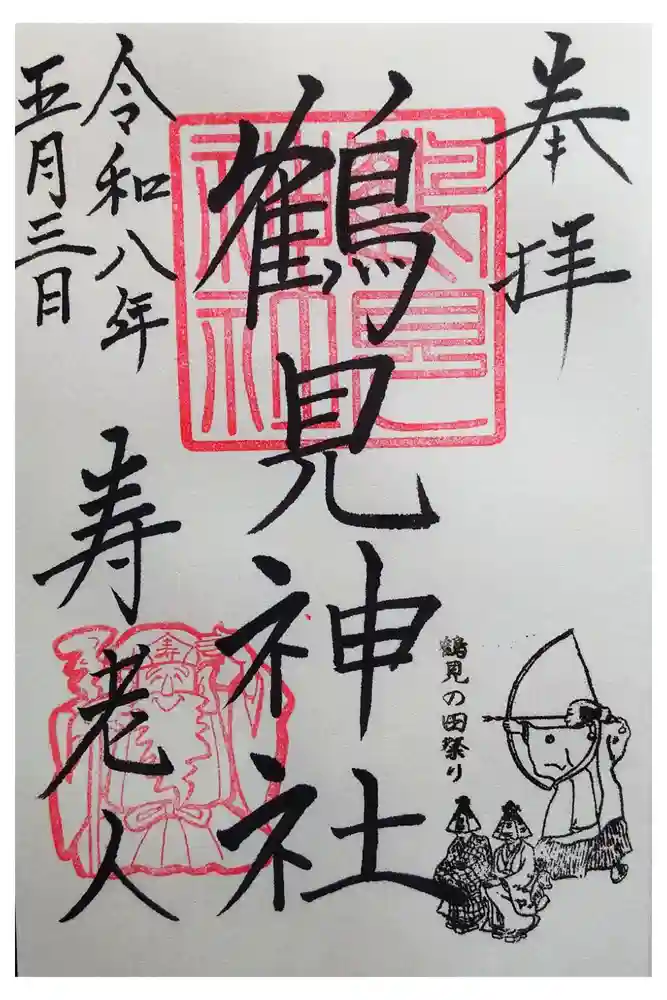 奉拝
鶴見神社
鶴見
神社
令和八年
五月三日
寿老人
寿
鶴見の田祭り